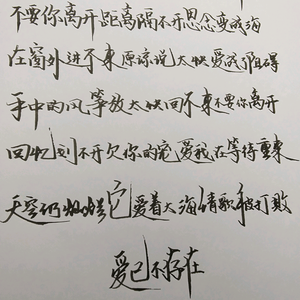 不要你离开距离隔不开思念变成海
在窗外进不来原谅说太快爱成了阻碍
手中的风筝放太快回不来不要你离开
回忆划不开欠你的宠爱我在等待重来
天空仍灿烂它爱着大海情歌被打败
爱已不存在